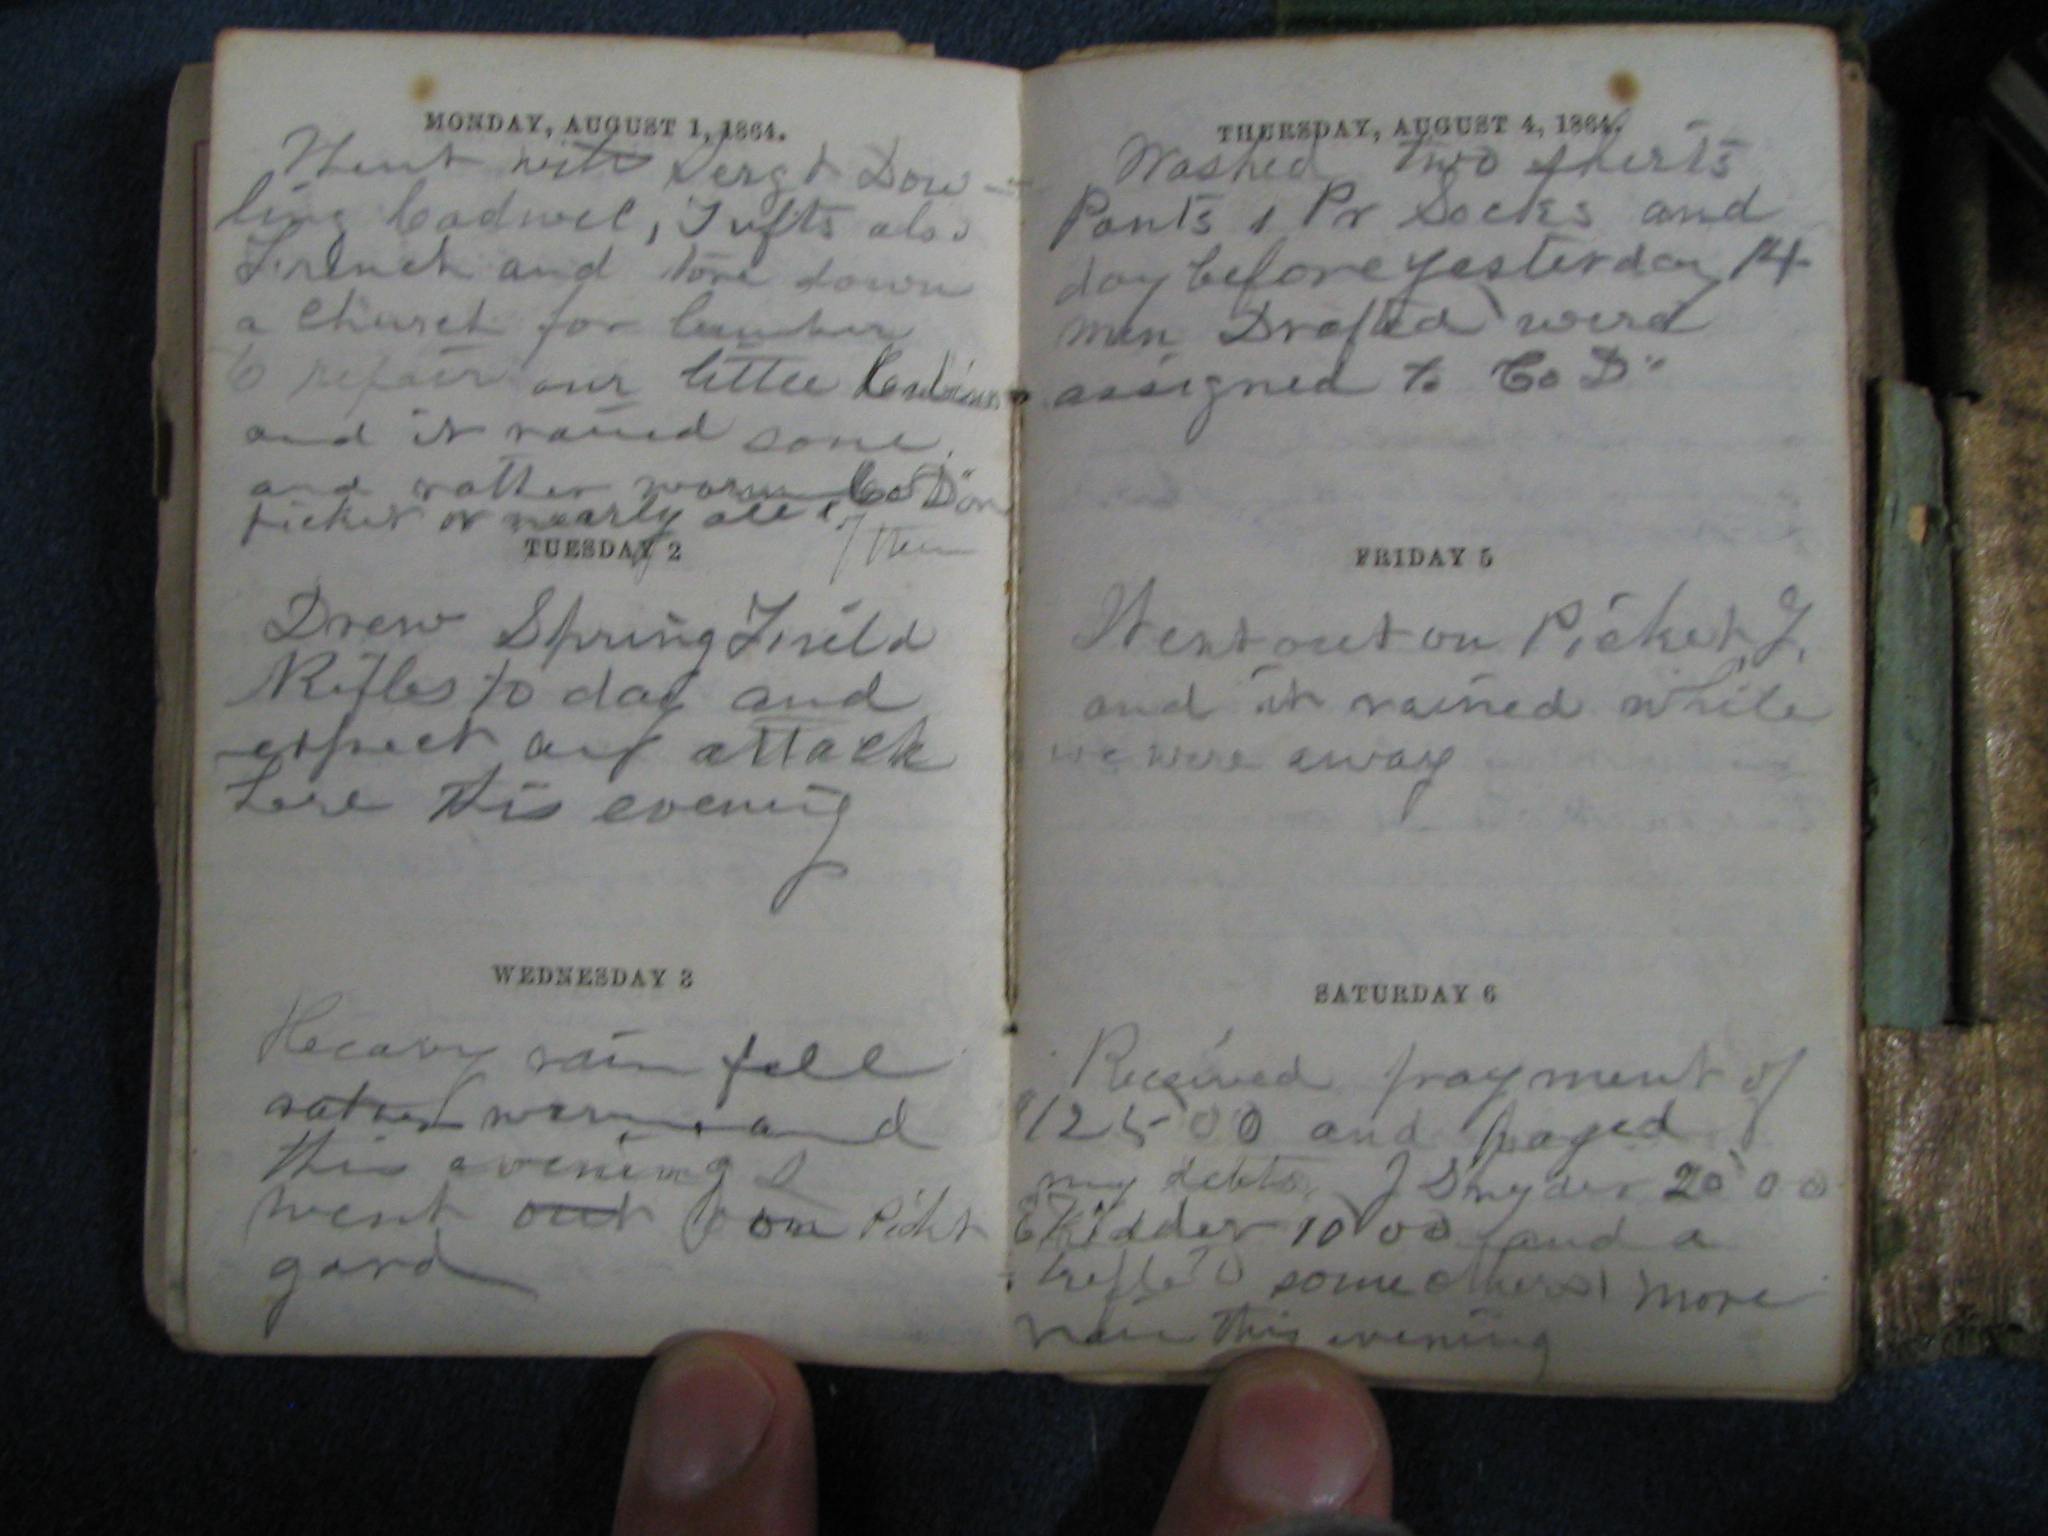 MONDAY, AUGUST 1, 1864.
Went with Sergt Dow-
ling Cadwel, Tufts also
French and tore down
a church for lumber
to repair our little Cabins
and it rained some
and rather warm Co "D" on
picket or nearly all of them
TUESDAY 2
Drew Spring Field
Rifles to day and
expect an attack
here this evening
WEDNESDAY 3
Heavy rain fell
rather warm and
this evening I
went out on Picket
gard
THURSDAY, AUGUST 4, 1864.
Washed two sherts
Pants 1 Pr Socks and
day before yesterday 14
men Drafted were
assigned to Co D"
FRIDAY 5
Went out on Picket
and it rained while
we were away
SATURDAY 6
Received payment of
$125 00 and payed
my debts, J Snyder 20 00
E Kidder 10 00 and a
trifle to some others more
rain this evening